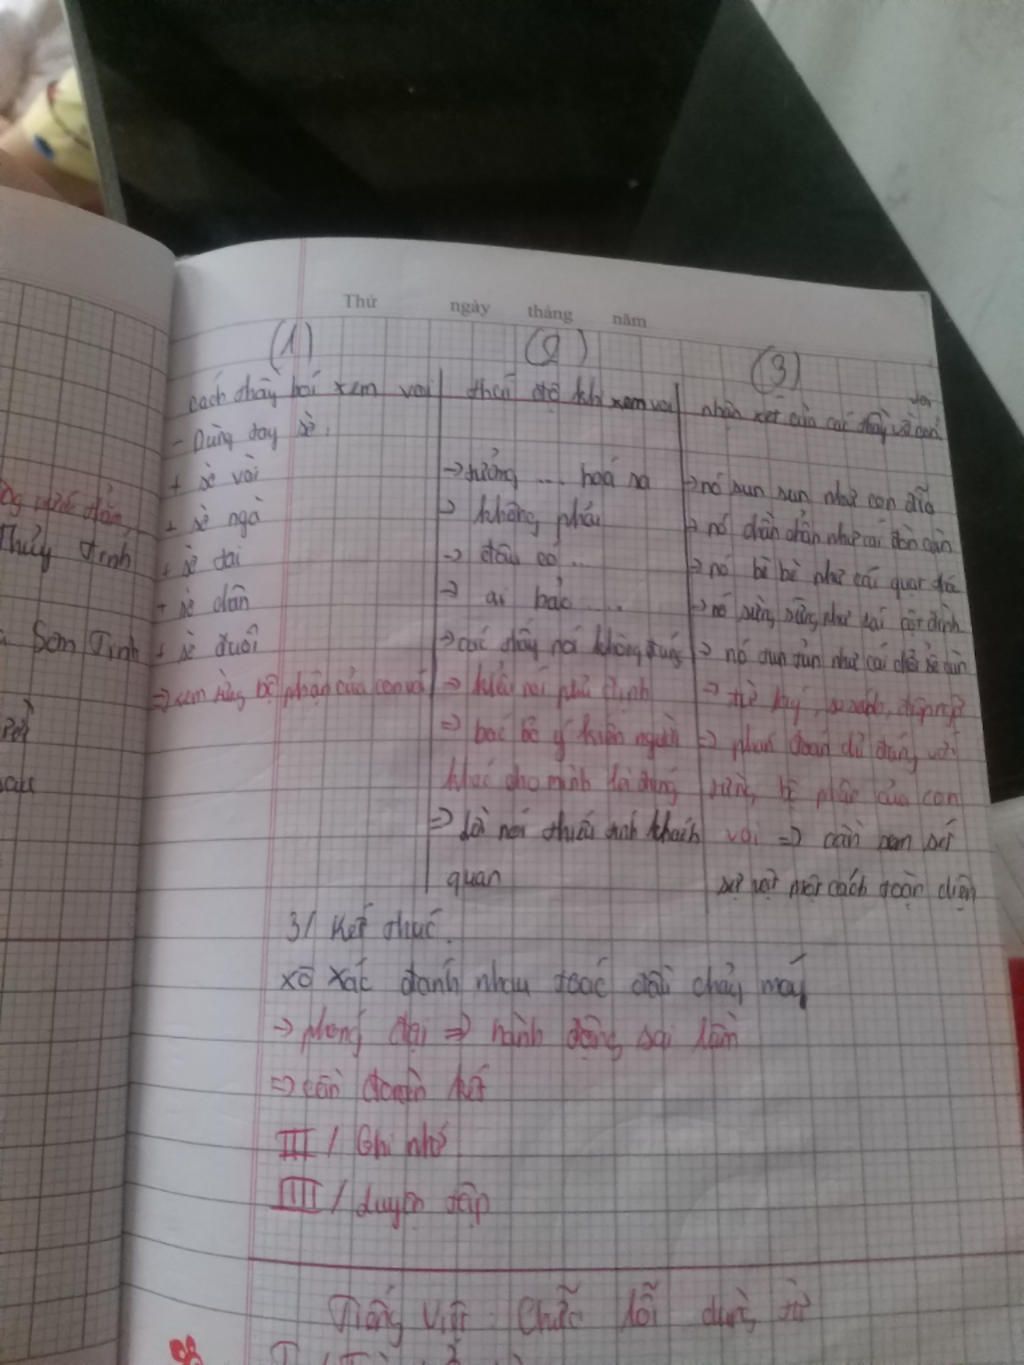 Thứ ngày tháng năm
(1) (2) (3)
cách thầy bói xem voi
- Dùng tay sờ:
+ sờ vòi
+ sờ ngà
+ sờ tai
+ sờ chân
+ sờ đuôi
=> xem từng bộ phận của con voi
thái độ khi xem voi
-> tưởng ... hoá ra
-> không phải
-> đâu có ..
-> ai bảo ....
-> các thầy nói không đúng
-> kiểu nói phủ định
=> bác bỏ ý kiến người
khác cho mình là đúng
=> lời nói thiếu tính khách
quan
nhận xét của các thầy về con
voi
-> nó sun sun như con đỉa
-> nó chần chẫn như cái đòn càn
-> nó bè bè như cái quạt thóc
-> nó sừng sững như cái cột đình
-> nó tun tủn như cái chổi sể cùn
-> từ láy, so sánh,
-> phán đoán
từng bộ phận của con
voi => cần xem xét
sự vật một cách toàn diện
3/ Kết thúc.
xô xát đánh nhau toác đầu chảy máu
-> phóng đại => hành động sai lầm
=> cần đoàn kết
III/ Ghi nhớ
IIII/ luyện tập
Tiếng Việt: Chữa lỗi dùng từ
Thủy Tinh
Sơn Tinh